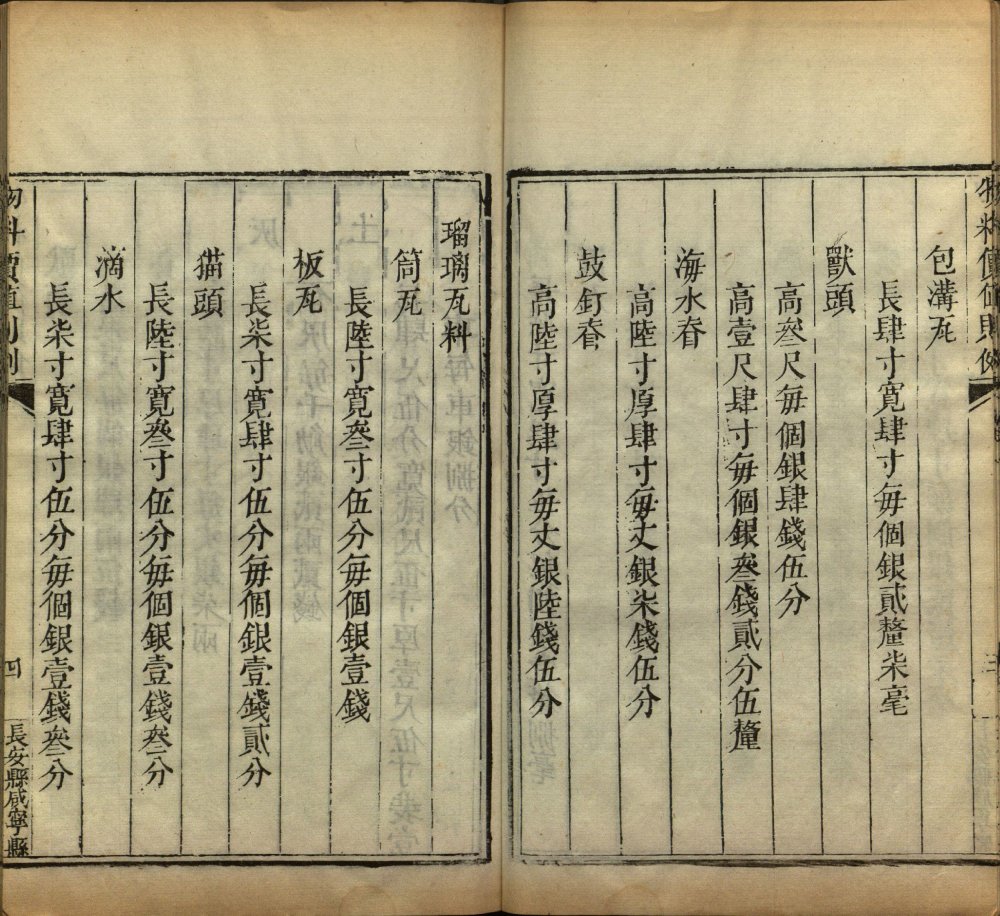 物料價值則例
三
包溝瓦
長肆寸寬肆寸每個銀貳釐柒毫
獸頭
高叄尺每個銀肆錢伍分
高壹尺肆寸每個銀叄錢貳分伍釐
海水脊
高陸寸厚肆寸每丈銀柒錢伍分
鼓釘脊
高陸寸厚肆寸每丈銀陸錢伍分
瑠璃瓦料
筒瓦
長陸寸寬叄寸伍分每個銀壹錢
板瓦
長柒寸寬肆寸伍分每個銀壹錢貳分
猫頭
長陸寸寬叄寸伍分每個銀壹錢叄分
滴水
長柒寸寬肆寸伍分每個銀壹錢叄分
物料價值則例
四
長安縣咸寧縣